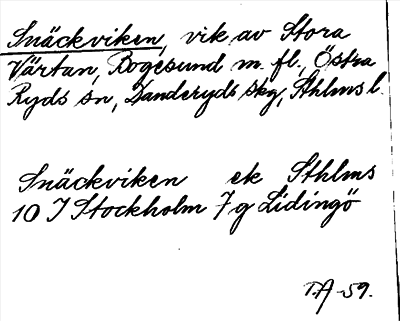 Snäckviken, vik av Stora
Värtan, Bogesund m. fl., Östra
Ryds sn, Danderyds skg, Sthlms l.
Snäckviken ek Sthlms
10 I Stockholm 7 g Lidingö
T.A -59.